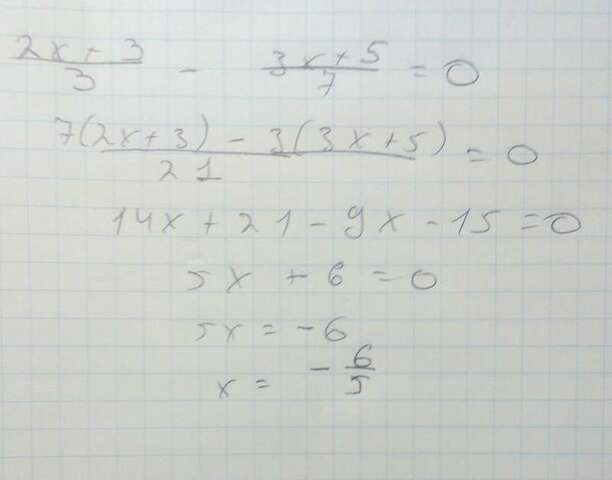 (2x + 3)/3 - (3x + 5)/7 = 0
(7(2x+3) - 3(3x+5))/21 = 0
14x + 21 - 9x - 15 = 0
5x + 6 = 0
5x = -6
x = -6/5